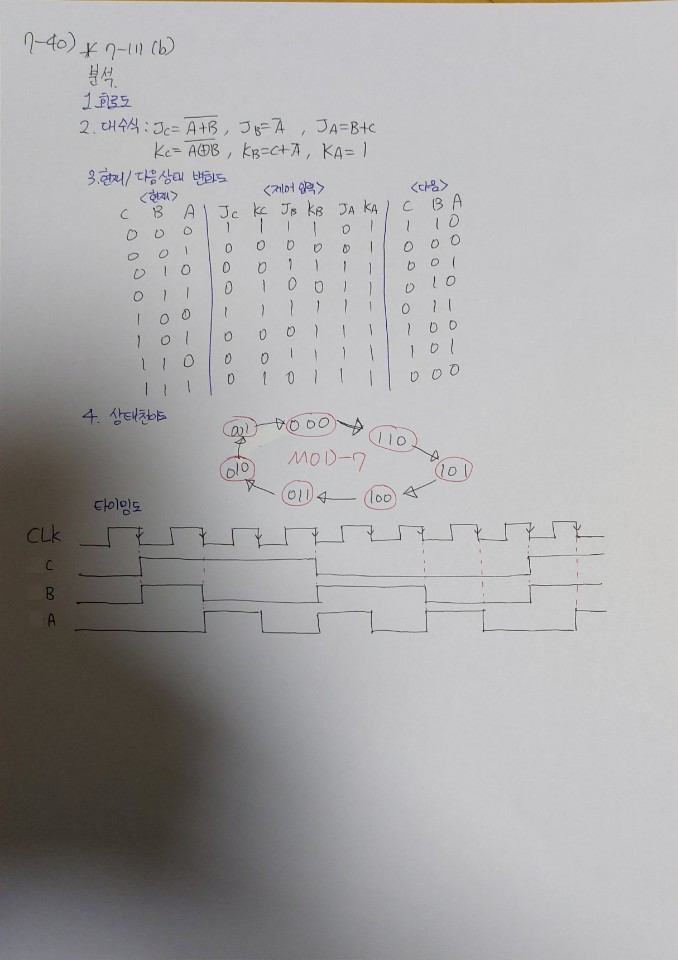 7-40) * 7-111 (b)
분석
1. 회로도
2. 대수식 : Jc= \overline{A+B} , JB= \overline{A} , JA=B+C
Kc= \overline{A⊕B} , KB=C+\overline{A} , KA= 1
3. 현재/다음상태 변화도
<현재> <제어 입력> <다음>
C B A Jc Kc JB KB JA KA C B A
0 0 0 1 1 1 1 0 1 1 1 0
0 0 1 0 0 0 0 0 1 0 0 0
0 1 0 0 0 1 1 1 1 0 0 1
0 1 1 0 1 0 0 1 1 0 1 0
1 0 0 1 1 1 1 1 1 0 1 1
1 0 1 0 0 0 1 1 1 1 0 0
1 1 0 0 0 1 1 1 1 1 0 1
1 1 1 0 1 0 1 1 1 0 0 0
4. 상태천이도
001 000 110
010 MOD-7 101
011 100
타이밍도
CLK
C
B
A